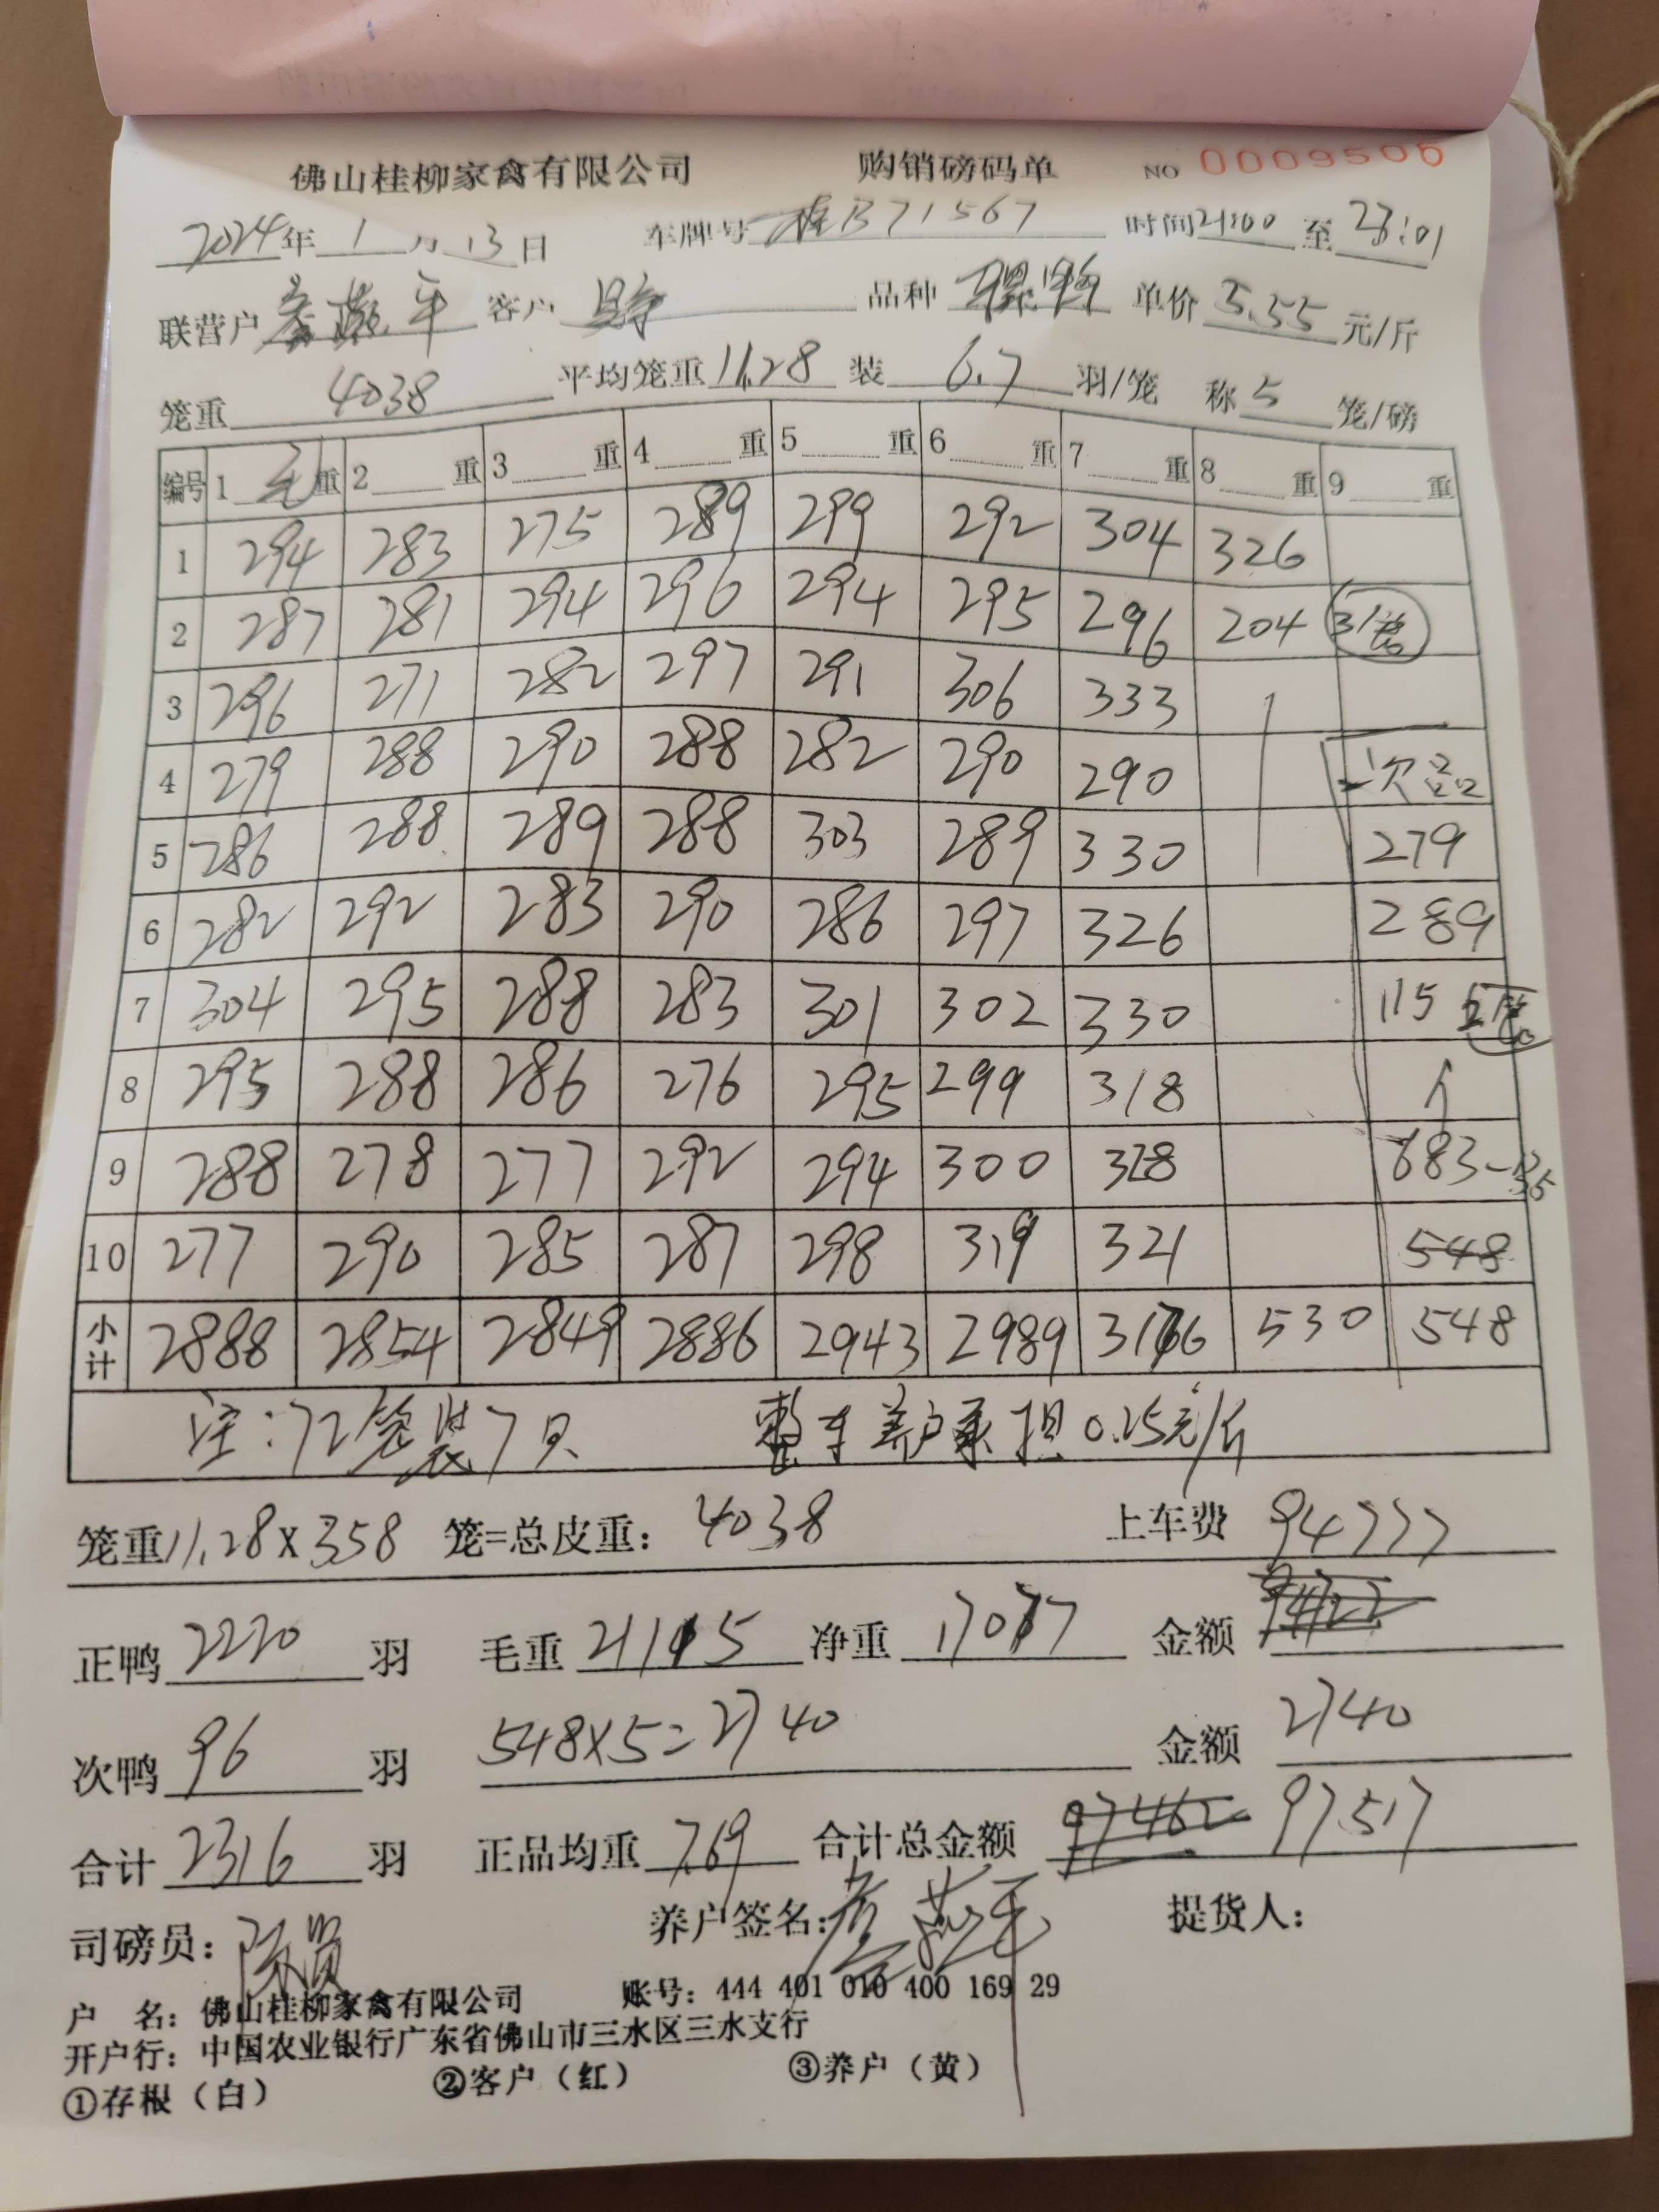 佛山桂柳家禽有限公司 购销磅码单 NO 0009506
2024年 1 月 13 日 车牌号 桂B71567 时间 21:00 至 23:01
联营户 詹燕平 客户 品种 骡鸭 单价 5.55 元/斤
笼重 4038 平均笼重 11.28 装 6.7 羽/笼 称 5 笼/磅
编号 1 毛 重 2 重 3 重 4 重 5 重 6 重 7 重 8 重 9 重
1 294 283 275 289 299 292 304 326
2 287 281 294 296 294 295 296 204 3笼
3 296 271 282 297 291 306 333
4 279 288 290 288 282 290 290 次品
5 286 288 289 288 303 289 330 279
6 282 292 283 290 286 297 326 289
7 304 295 288 283 301 302 330 115
8 295 288 286 276 295 299 318
9 288 278 277 292 294 300 328 683-135
10 277 290 285 287 298 319 321 548
小计 2888 2854 2849 2886 2943 2989 3176 530 548
注：72笼装7只 整车养户承担0.25元/斤
笼重 11.28 x 358 笼=总皮重： 4038 上车费 94777
正鸭 2220 羽 毛重 21115 净重 17077 金额
次鸭 96 羽 548x5=2740 金额 2740
合计 2316 羽 正品均重 7.69 合计总金额 97462 97517
司磅员： 养户签名：詹燕平 提货人：
户 名：佛山桂柳家禽有限公司 账号：444 401 010 400 169 29
开户行：中国农业银行广东省佛山市三水区三水支行
①存根（白） ②客户（红） ③养户（黄）